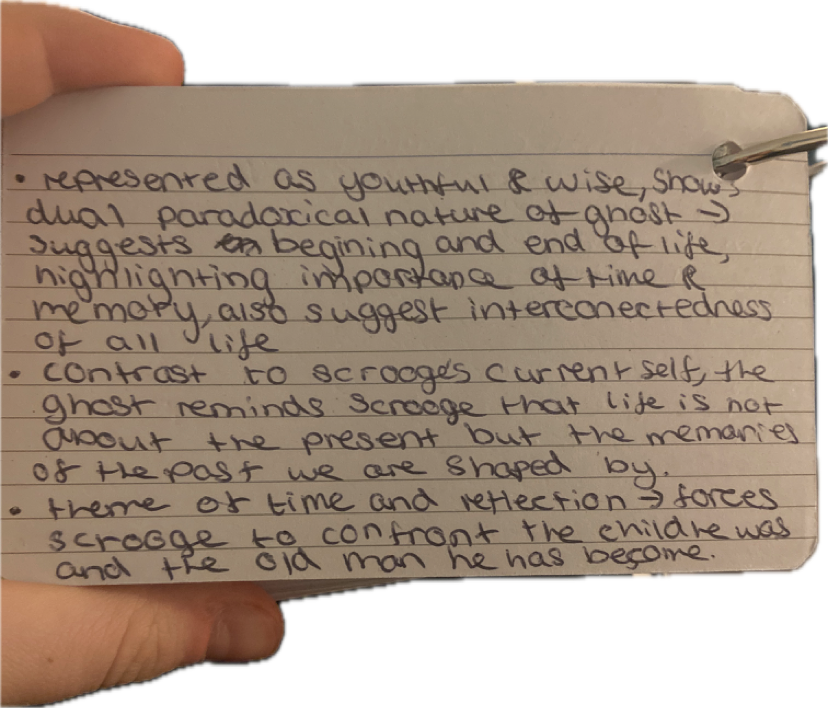 • represented as youthful & wise, shows
dual paradoxical nature of ghost →
suggests begining and end of life,
highlighting importance of time &
memory, also suggest interconectedness
of all life
• contrast to scrooge's current self, the
ghost reminds scrooge that life is not
about the present but the memories
of the past we are shaped by.
• theme of time and reflection → forces
scrooge to confront the child he was
and the old man he has become.